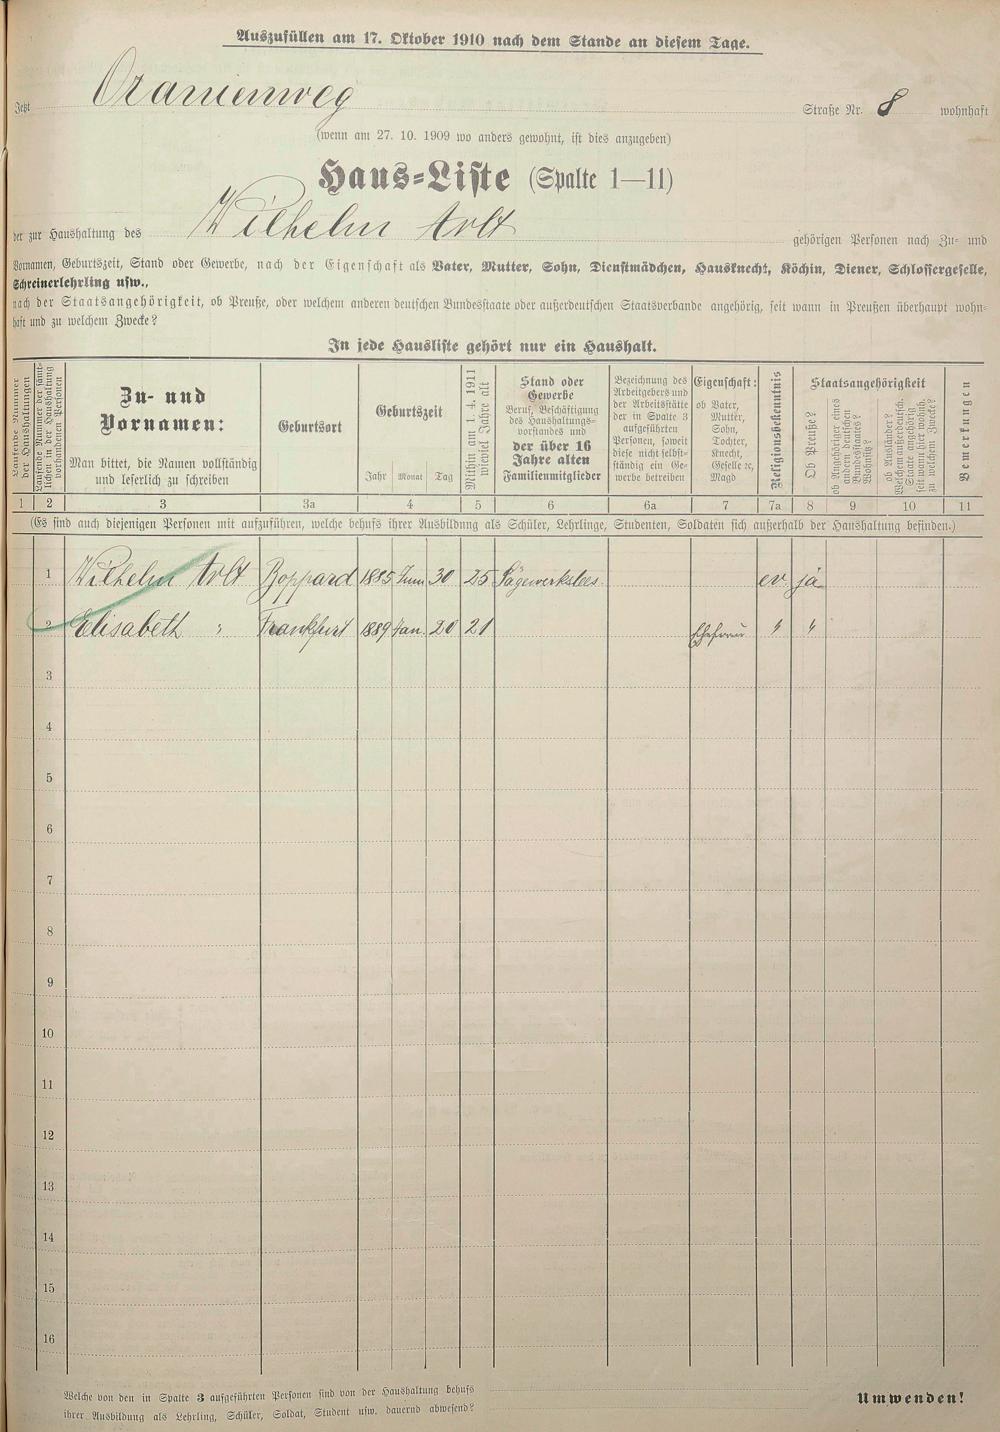 Auszufüllen am 17. Oktober 1910 nach dem Stande an diesem Tage.
Jetzt Oranienweg Straße Nr. 8 wohnhaft
(wenn am 27. 10. 1909 wo anders gewohnt, ist dies anzugeben)
Haus=Liste (Spalte 1—11)
der zur Haushaltung des Wilhelm Arlt gehörigen Personen nach Zu- und
Vornamen, Geburtszeit, Stand oder Gewerbe, nach der Eigenschaft als Vater, Mutter, Sohn, Dienstmädchen, Hausknecht, Köchin, Diener, Schlossergeselle,
Schreinerlehrling usw.,
nach der Staatsangehörigkeit, ob Preuße, oder welchem anderen deutschen Bundesstaate oder außerdeutschen Staatsverbande angehörig, seit wann in Preußen überhaupt wohn-
haft und zu welchem Zwecke?
In jede Hausliste gehört nur ein Haushalt.
Laufende Nummer
der Haushaltungen
Laufende Nummer der sämt-
lichen in der Haushaltung
vorhandenen Personen
Zu- und
Vornamen:
Man bittet, die Namen vollständig
und leserlich zu schreiben
Geburtsort
Geburtszeit
Jahr Monat Tag
Mithin am 1. 4. 1911
wieviel Jahre alt
Stand oder
Gewerbe
Beruf, Beschäftigung
des Haushaltungs-
vorstandes und
der über 16
Jahre alten
Familienmitglieder
Bezeichnung des
Arbeitgebers und
der Arbeitsstätte
der in Spalte 3
aufgeführten
Personen, soweit
diese nicht selbst-
ständig ein Ge-
werbe betreiben
Eigenschaft:
ob Vater,
Mutter,
Sohn,
Tochter,
Knecht,
Geselle ec,
Magd
Religionsbekenntnis
Staatsangehörigkeit
Ob Preuße?
ob Angehöriger eines
andern deutschen
Bundesstaates?
Wohnsitz?
ob Ausländer?
Welchem außerdeutsch.
Staate angehörig
seit wann hier wohnh.
zu welchem Zwecke?
Bemerkungen
1 2 3 3a 4 5 6 6a 7 7a 8 9 10 11
(Es sind auch diejenigen Personen mit aufzuführen, welche behufs ihrer Ausbildung als Schüler, Lehrlinge, Studenten, Soldaten sich außerhalb der Haushaltung befinden.)
1 Wilhelm Arlt Boppard 1885 Juni 30 25 ev. ja
2 Elisabeth " Frankfurt 1889 Jan. 20 21 Ehefrau " "
3
4
5
6
7
8
9
10
11
12
13
14
15
16
Welche von den in Spalte 3 aufgeführten Personen sind von der Haushaltung behufs
ihrer Ausbildung als Lehrling, Schüler, Soldat, Student usw. dauernd abwesend?
Umwenden!